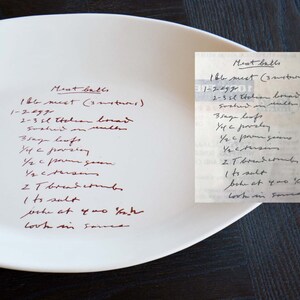 Meat balls
1 lb meat (
1-2 eggs
2-3 sl Italian bread
Soaked in
3 bay leafs
1/4 c parsley
1/2 c parmesan
1/2 c raisins
2 T breadcrumbs
1 ts salt
bake at 400
Cook in sauce
Meat balls
1 lb meat (
1-2 eggs
2-3 sl Italian bread
Soaked in
3 bay leafs
1/4 c parsley
1/2 c parmesan
1/2 c raisins
2 T breadcrumbs
1 ts salt
bake at 400
Cook in sauce